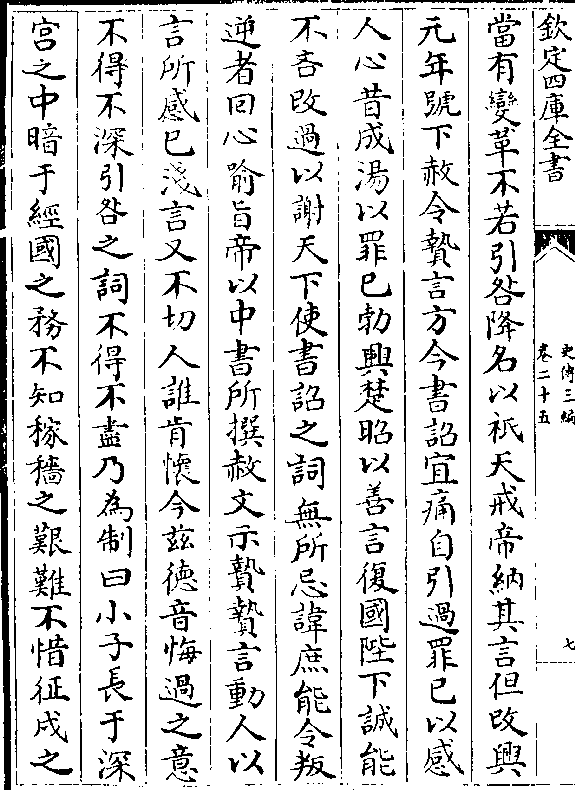 欽定四庫全書
史傳三編
卷二十五
七
當有變革不若引咎降名以祇天戒帝納其言但改興
元年號下赦令贄言方今書詔宜痛自引過罪已以感
人心昔成湯以罪已勃興楚昭以善言復國陛下誠能
不吝改過以謝天下使書詔之詞無所忌諱庶能令叛
逆者回心喻旨帝以中書所撰赦文示贄贄言動人以
言所感已淺言又不切人誰肯懷今兹德音悔過之意
不得不深引咎之詞不得不盡乃為制曰小子長于深
宫之中暗于經國之務不知稼穡之艱難不惜征戍之